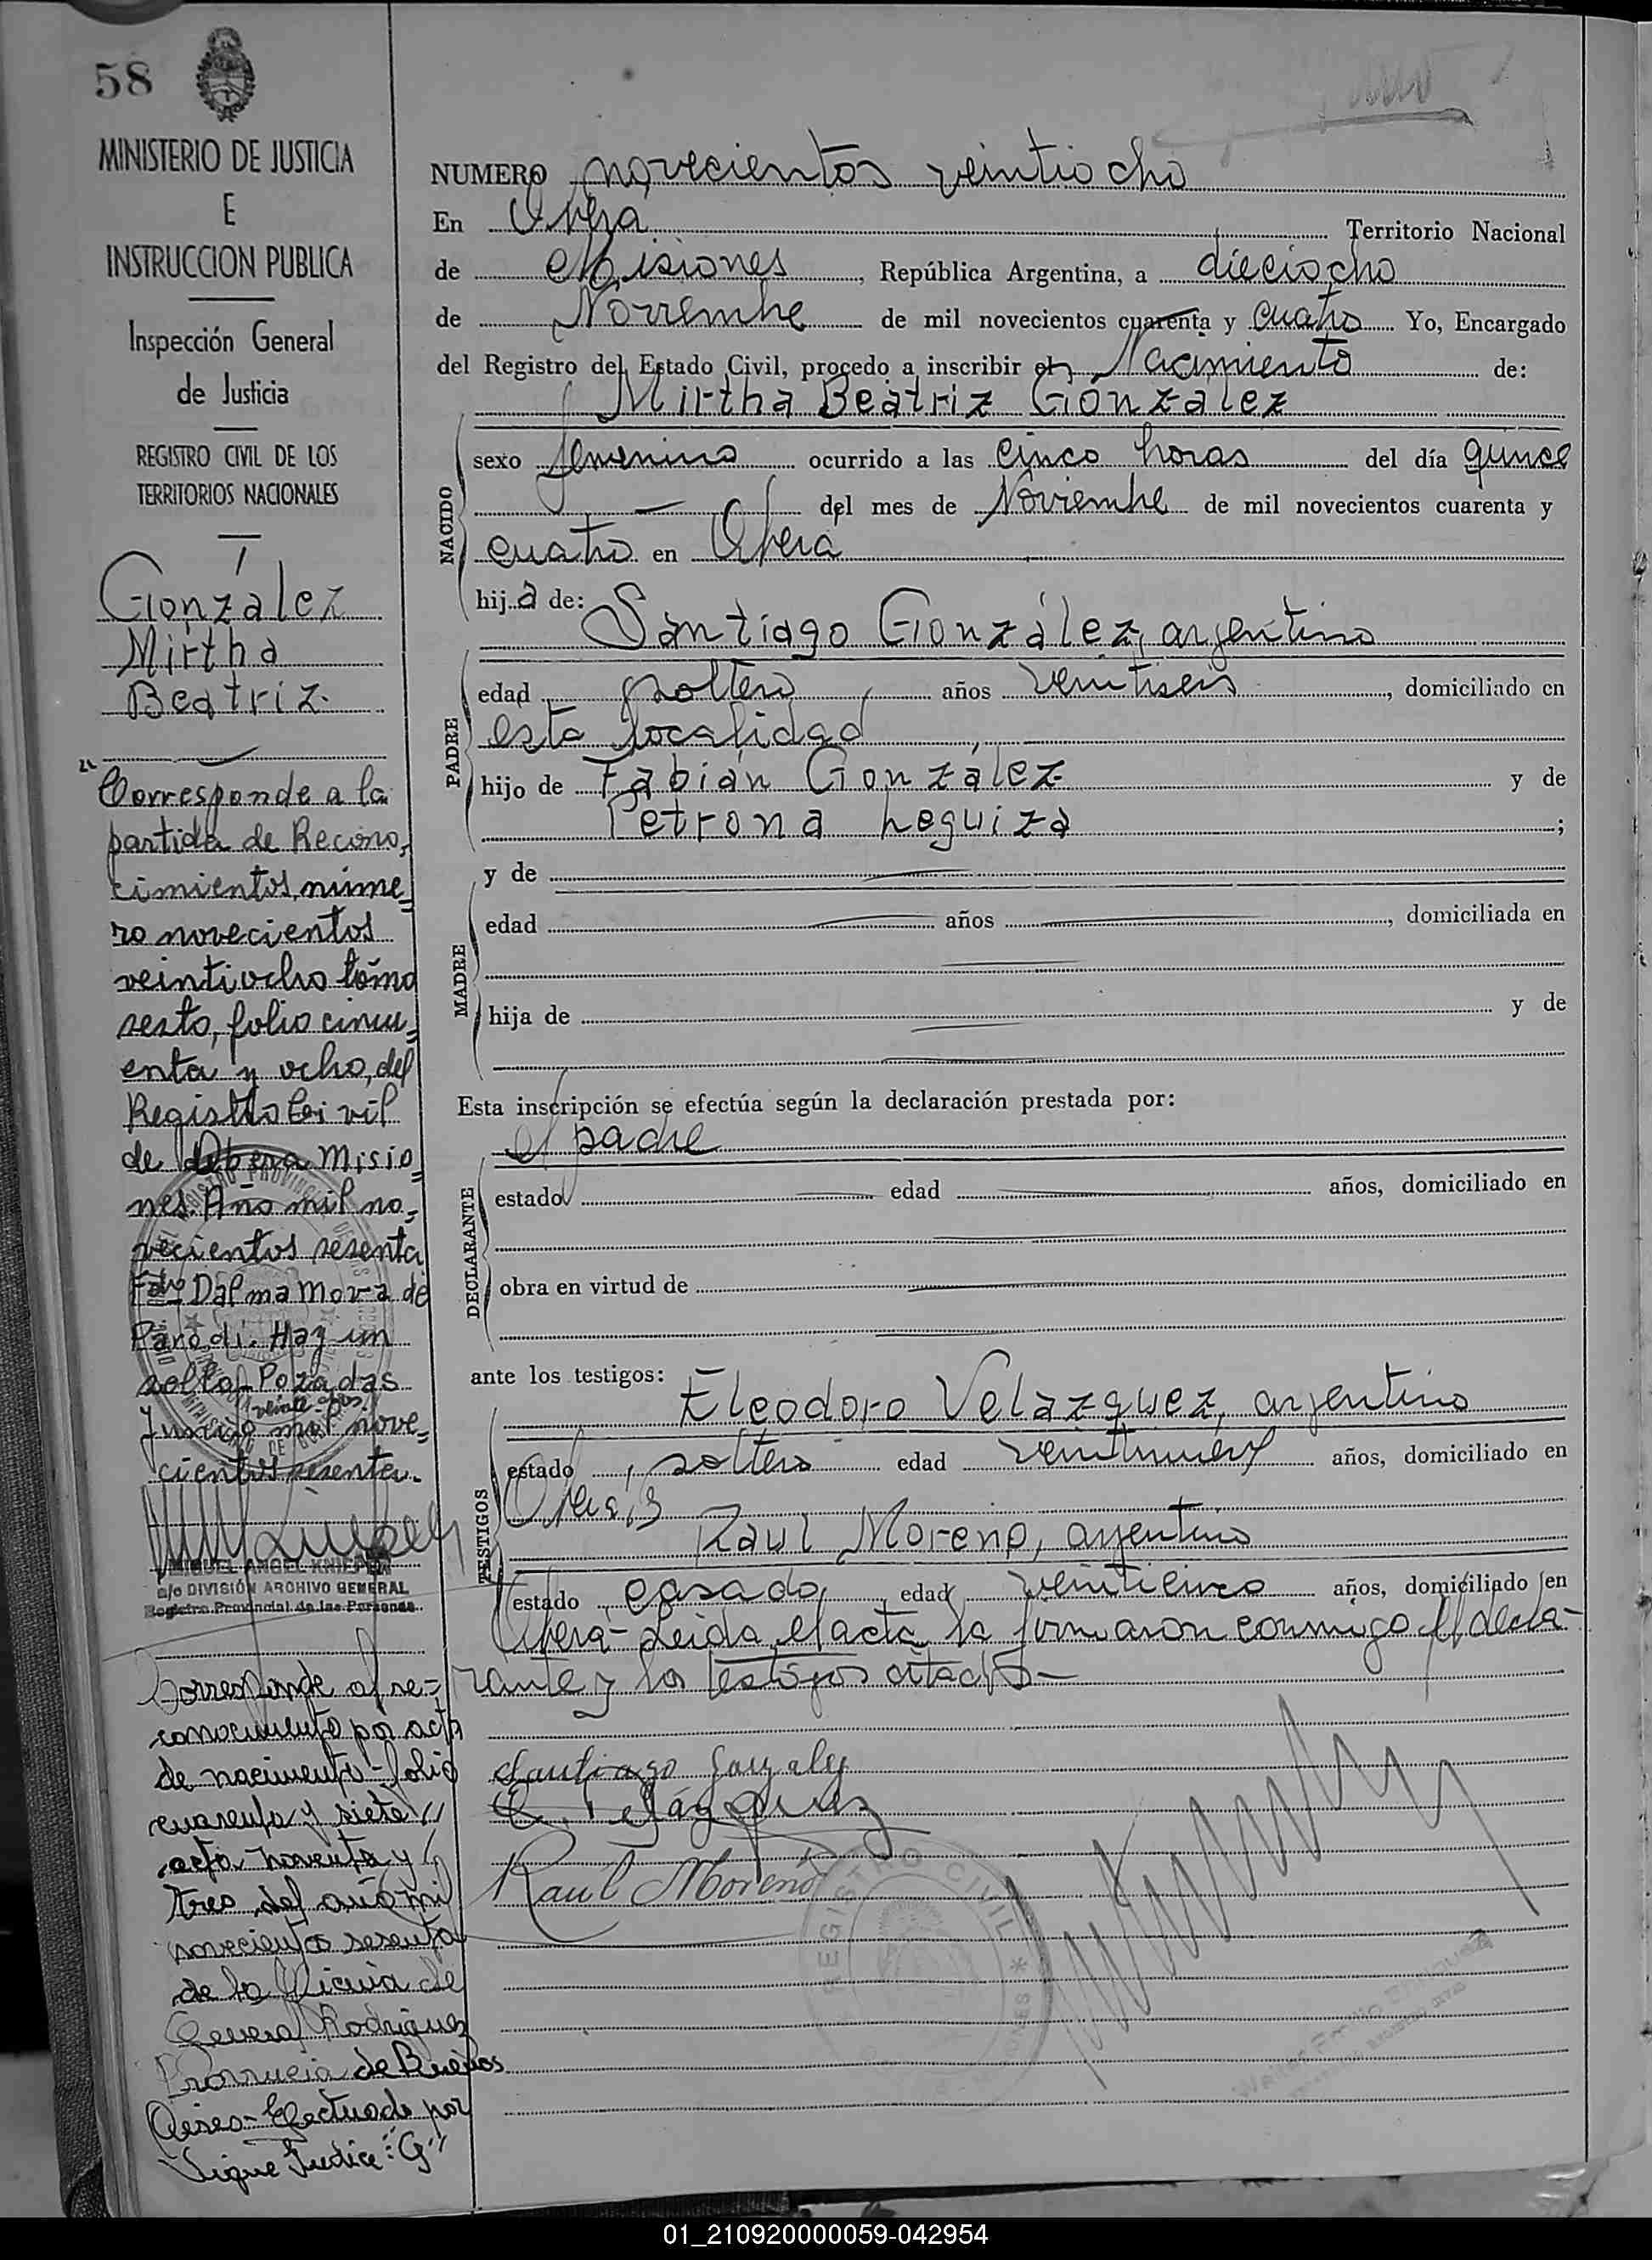 58
MINISTERIO DE JUSTICIA
E
INSTRUCCION PUBLICA
Inspección General
de Justicia
REGISTRO CIVIL DE LOS
TERRITORIOS NACIONALES
González
Mirtha
Beatriz
Corresponde a la
partida de Recono-
cimientos, núme-
ro novecientos
veintiocho tomo
sesto, folio cincu-
enta y ocho, del
Registro Civil
de Obera Misio-
nes. Año mil no-
vecientos sesenta
Fdo Dalma Mora de
Parodi. Hay un
sello Posadas
Junio mil nove-
cientos sesenta.
MIGUEL ANGEL KNIEPER
a/c DIVISIÓN ARCHIVO GENERAL
Registro Provincial de las Personas
Corresponde al re-
conocimiento por acta
de nacimiento folio
cuarenta y siete
acta noventa y
tres del año mil
novecientos sesenta
de la Oficina de
General Rodriguez
Provincia de Buenos
Aires- Efectuado por
Sigue Indice "G"
NUMERO novecientos veintiocho
En Obera Territorio Nacional
de Misiones, República Argentina, a dieciocho
de Noviembre de mil novecientos cuarenta y cuatro Yo, Encargado
del Registro del Estado Civil, procedo a inscribir el Nacimiento de:
Mirtha Beatriz González
NACIDO
sexo femenino ocurrido a las cinco horas del día quince
del mes de Noviembre de mil novecientos cuarenta y
cuatro en Obera
hija de:
Santiago González, argentino
PADRE
edad soltero, años veintiseis, domiciliado en
esta localidad,
hijo de Fabián González y de
Petrona Leguiza;
y de
MADRE
edad años, domiciliada en
hija de y de
Esta inscripción se efectúa según la declaración prestada por:
el padre
DECLARANTE
estado edad años, domiciliado en
obra en virtud de
ante los testigos:
Eleodoro Velázquez, argentino
TESTIGOS
estado, soltero edad veintinueve años, domiciliado en
Obera, y
Raul Moreno, argentino
estado casado, edad veinticinco años, domiciliado en
Obera- Leida el acta la firmaron conmigo el decla-
rante y los testigos citados-
Santiago Gonzalez
E. Velázquez
Raul Moreno
REGISTRO CIVIL
01_210920000059-042954